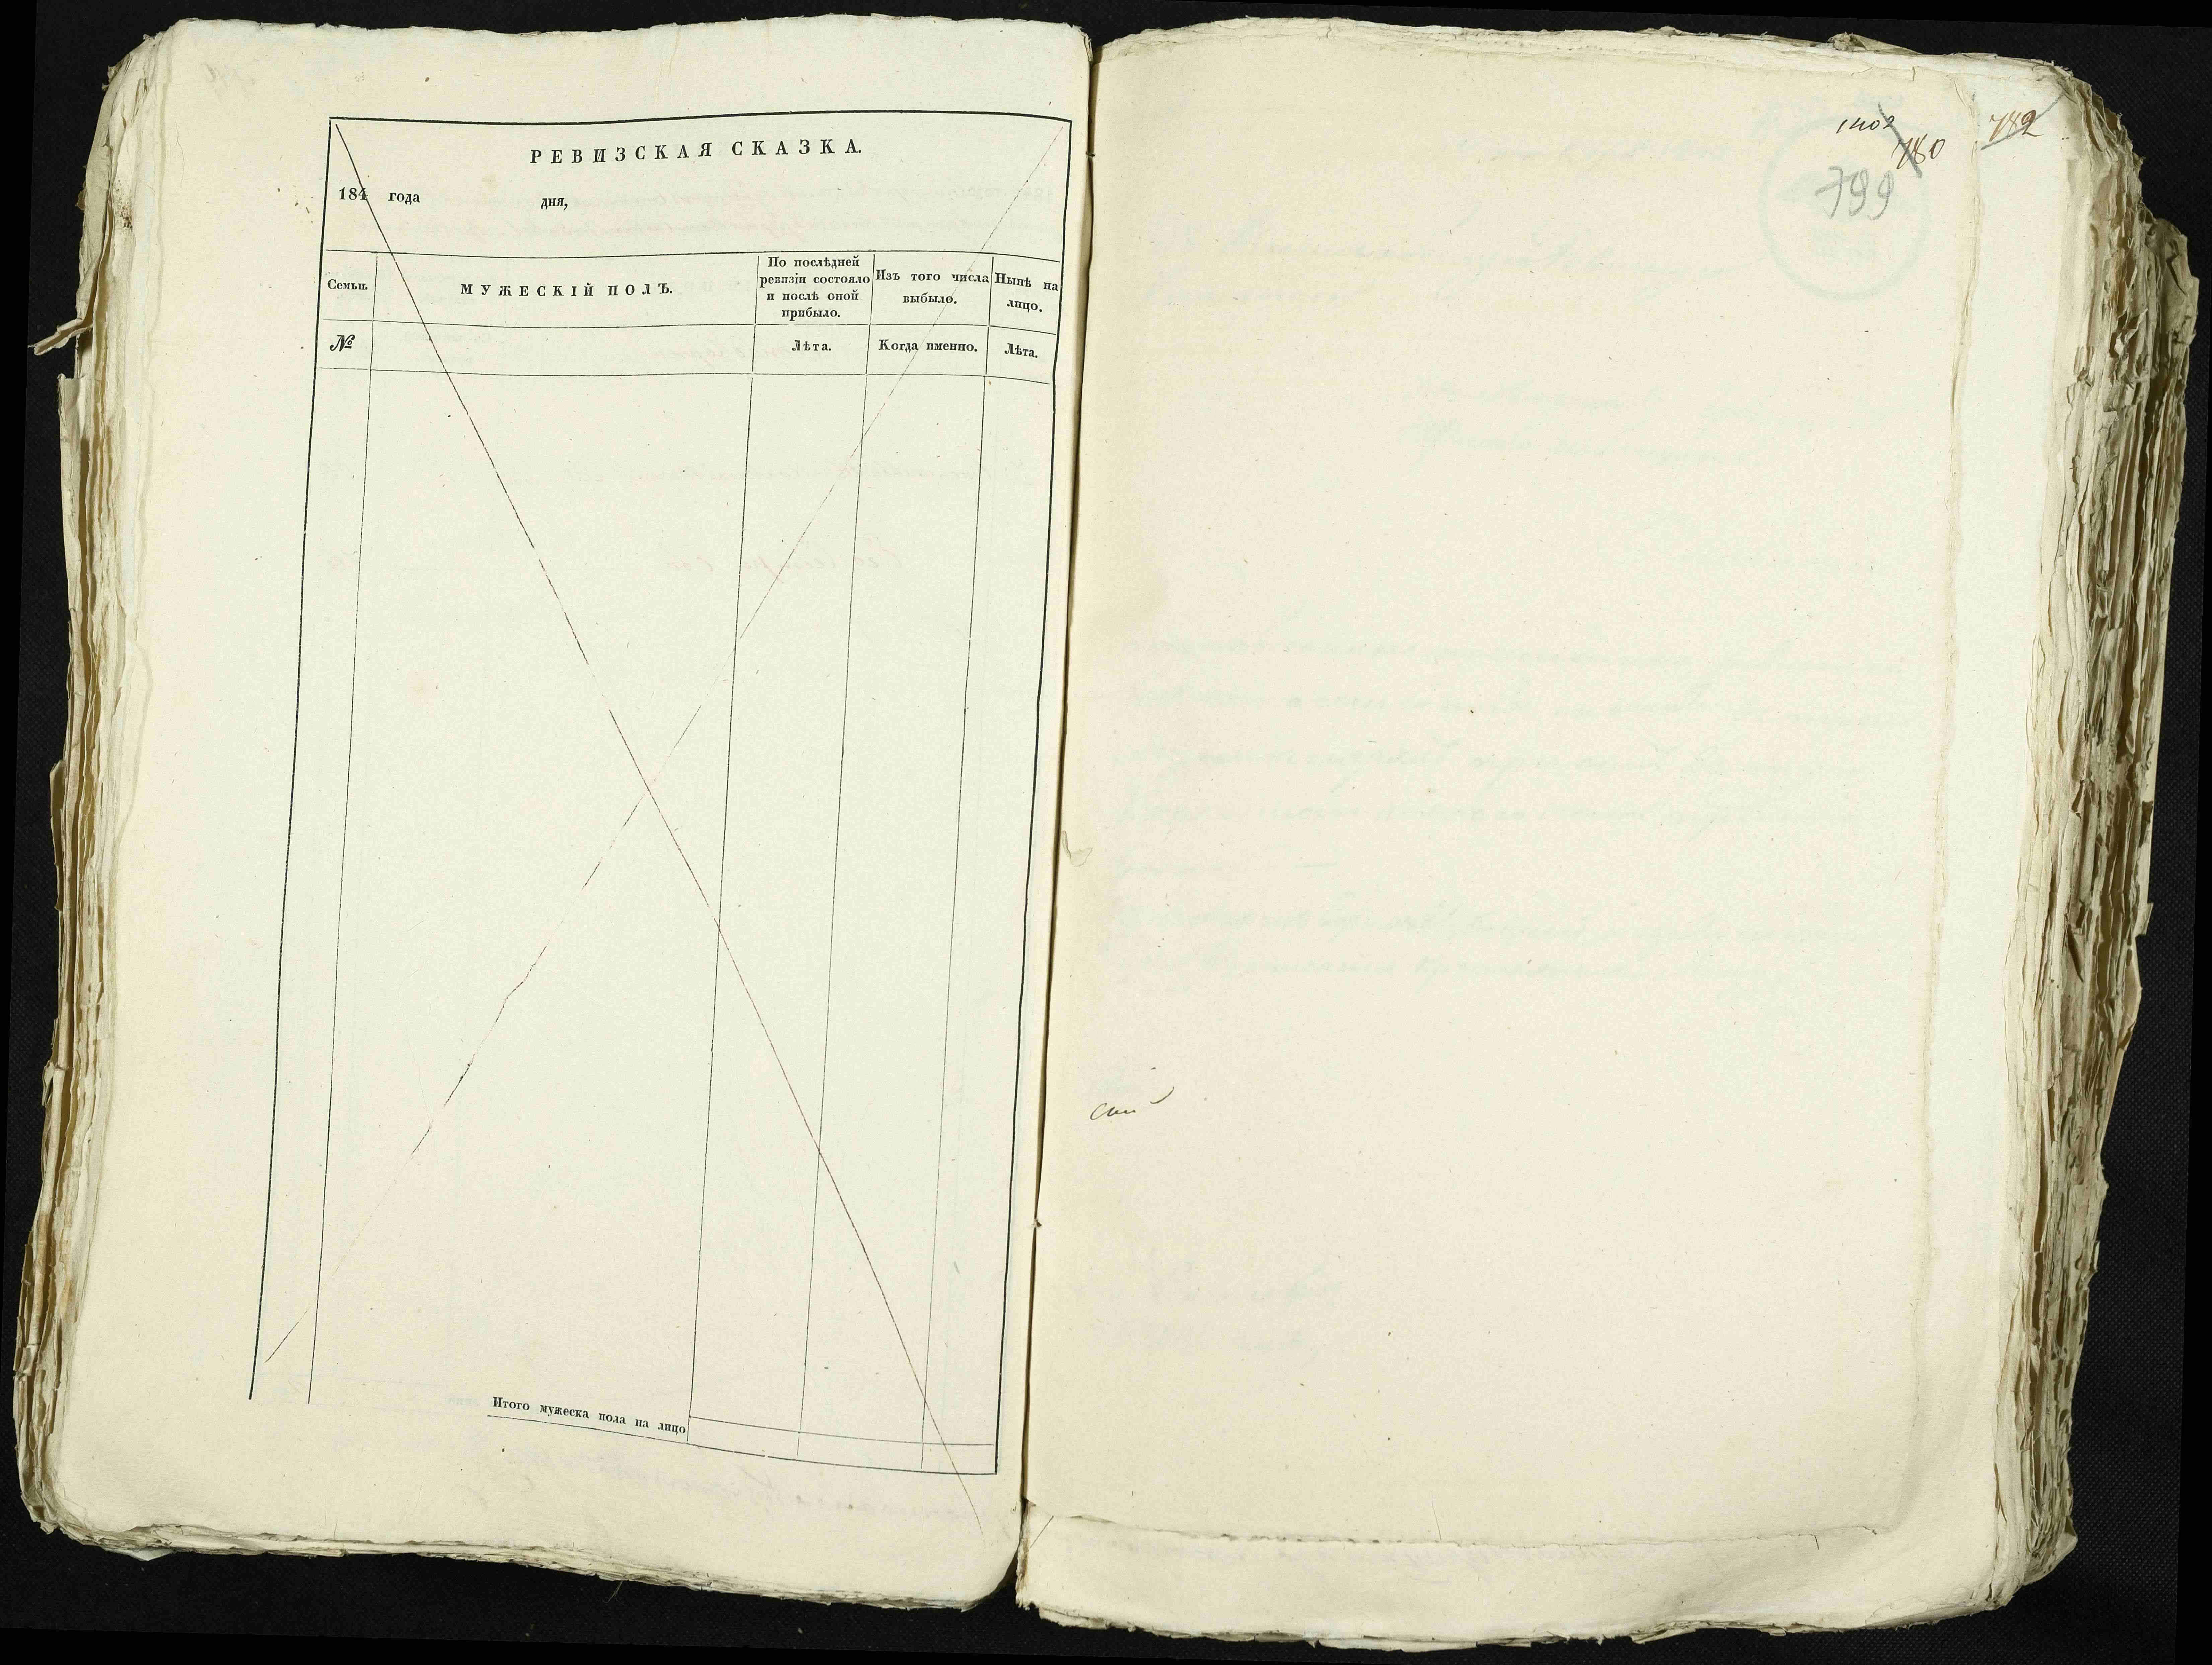 РЕВИЗСКАЯ СКАЗКА.
184 года дня,
Семьи.
МУЖЕСКІЙ ПОЛЪ.
По послѣдней
ревизіи состояло
и послѣ оной
прибыло.
Изъ того числа
выбыло.
Нынѣ на
лицо.
№
Лѣта.
Когда именно.
Лѣта.
Итого мужеска пола на лицо
1402
780
782
799